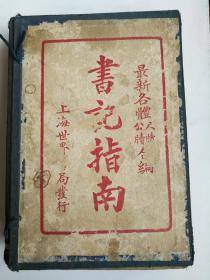 最新各體
尺牘
公牘
全編
書記指南
上海世界
局發行